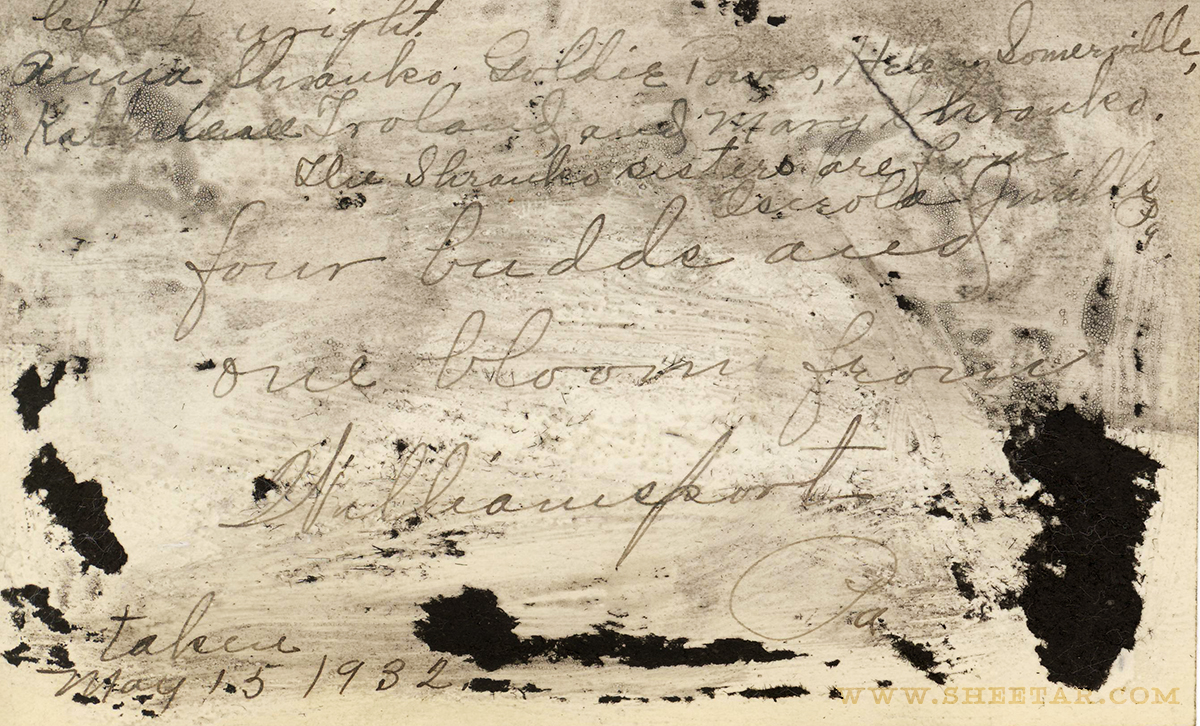 left to wright.
Anna Shranko, Goldie Powis, Helen Somerville,
Katherleae Troland and Mary Shranko.
The Shranko sisters are from
Osceola Mills
Pa
four budds and
one bloom from
Williamsport
Pa
taken
May 15 1932.
WWW.SHEETAR.COM